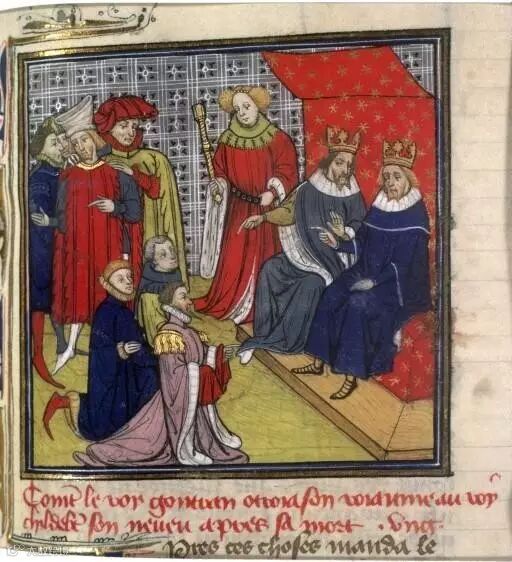 Com̃t le roy gontran ottroia son roiaume au roy
childeb̃t son neveu apres sa mort .
Pres ces choses manda le